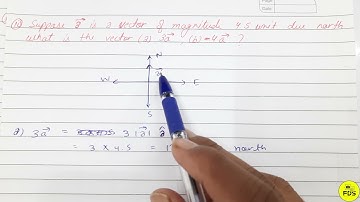 Q) Suppose a⃗ is a vector of magnitude 4.5 unit due north
what is the vector (a) 3a⃗, (b) -4a⃗ ?
N
a⃗
W E
S
a) 3a⃗ = 3|a⃗| â
= 3 x 4.5 = 1 north
FDS